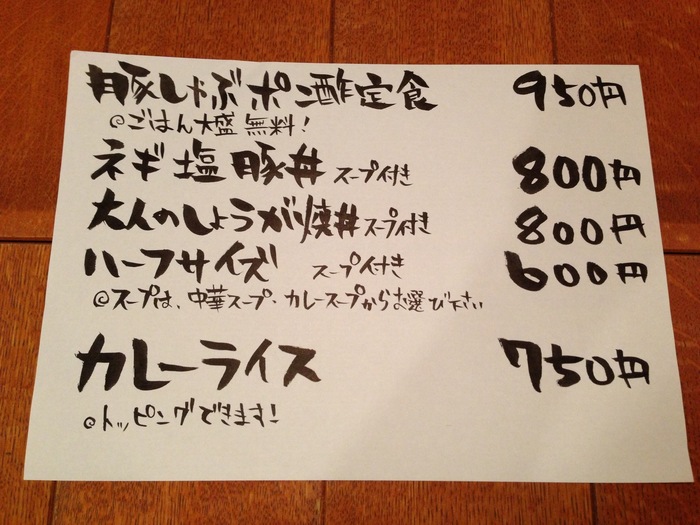 豚しゃぶポン酢定食 950円
◎ごはん大盛無料!
ネギ塩豚丼 スープ付き 800円
大人のしょうが焼丼 スープ付き 800円
ハーフサイズ スープ付き 600円
◎スープは、中華スープ・カレースープからお選び下さい
カレーライス 750円
◎トッピングできます!